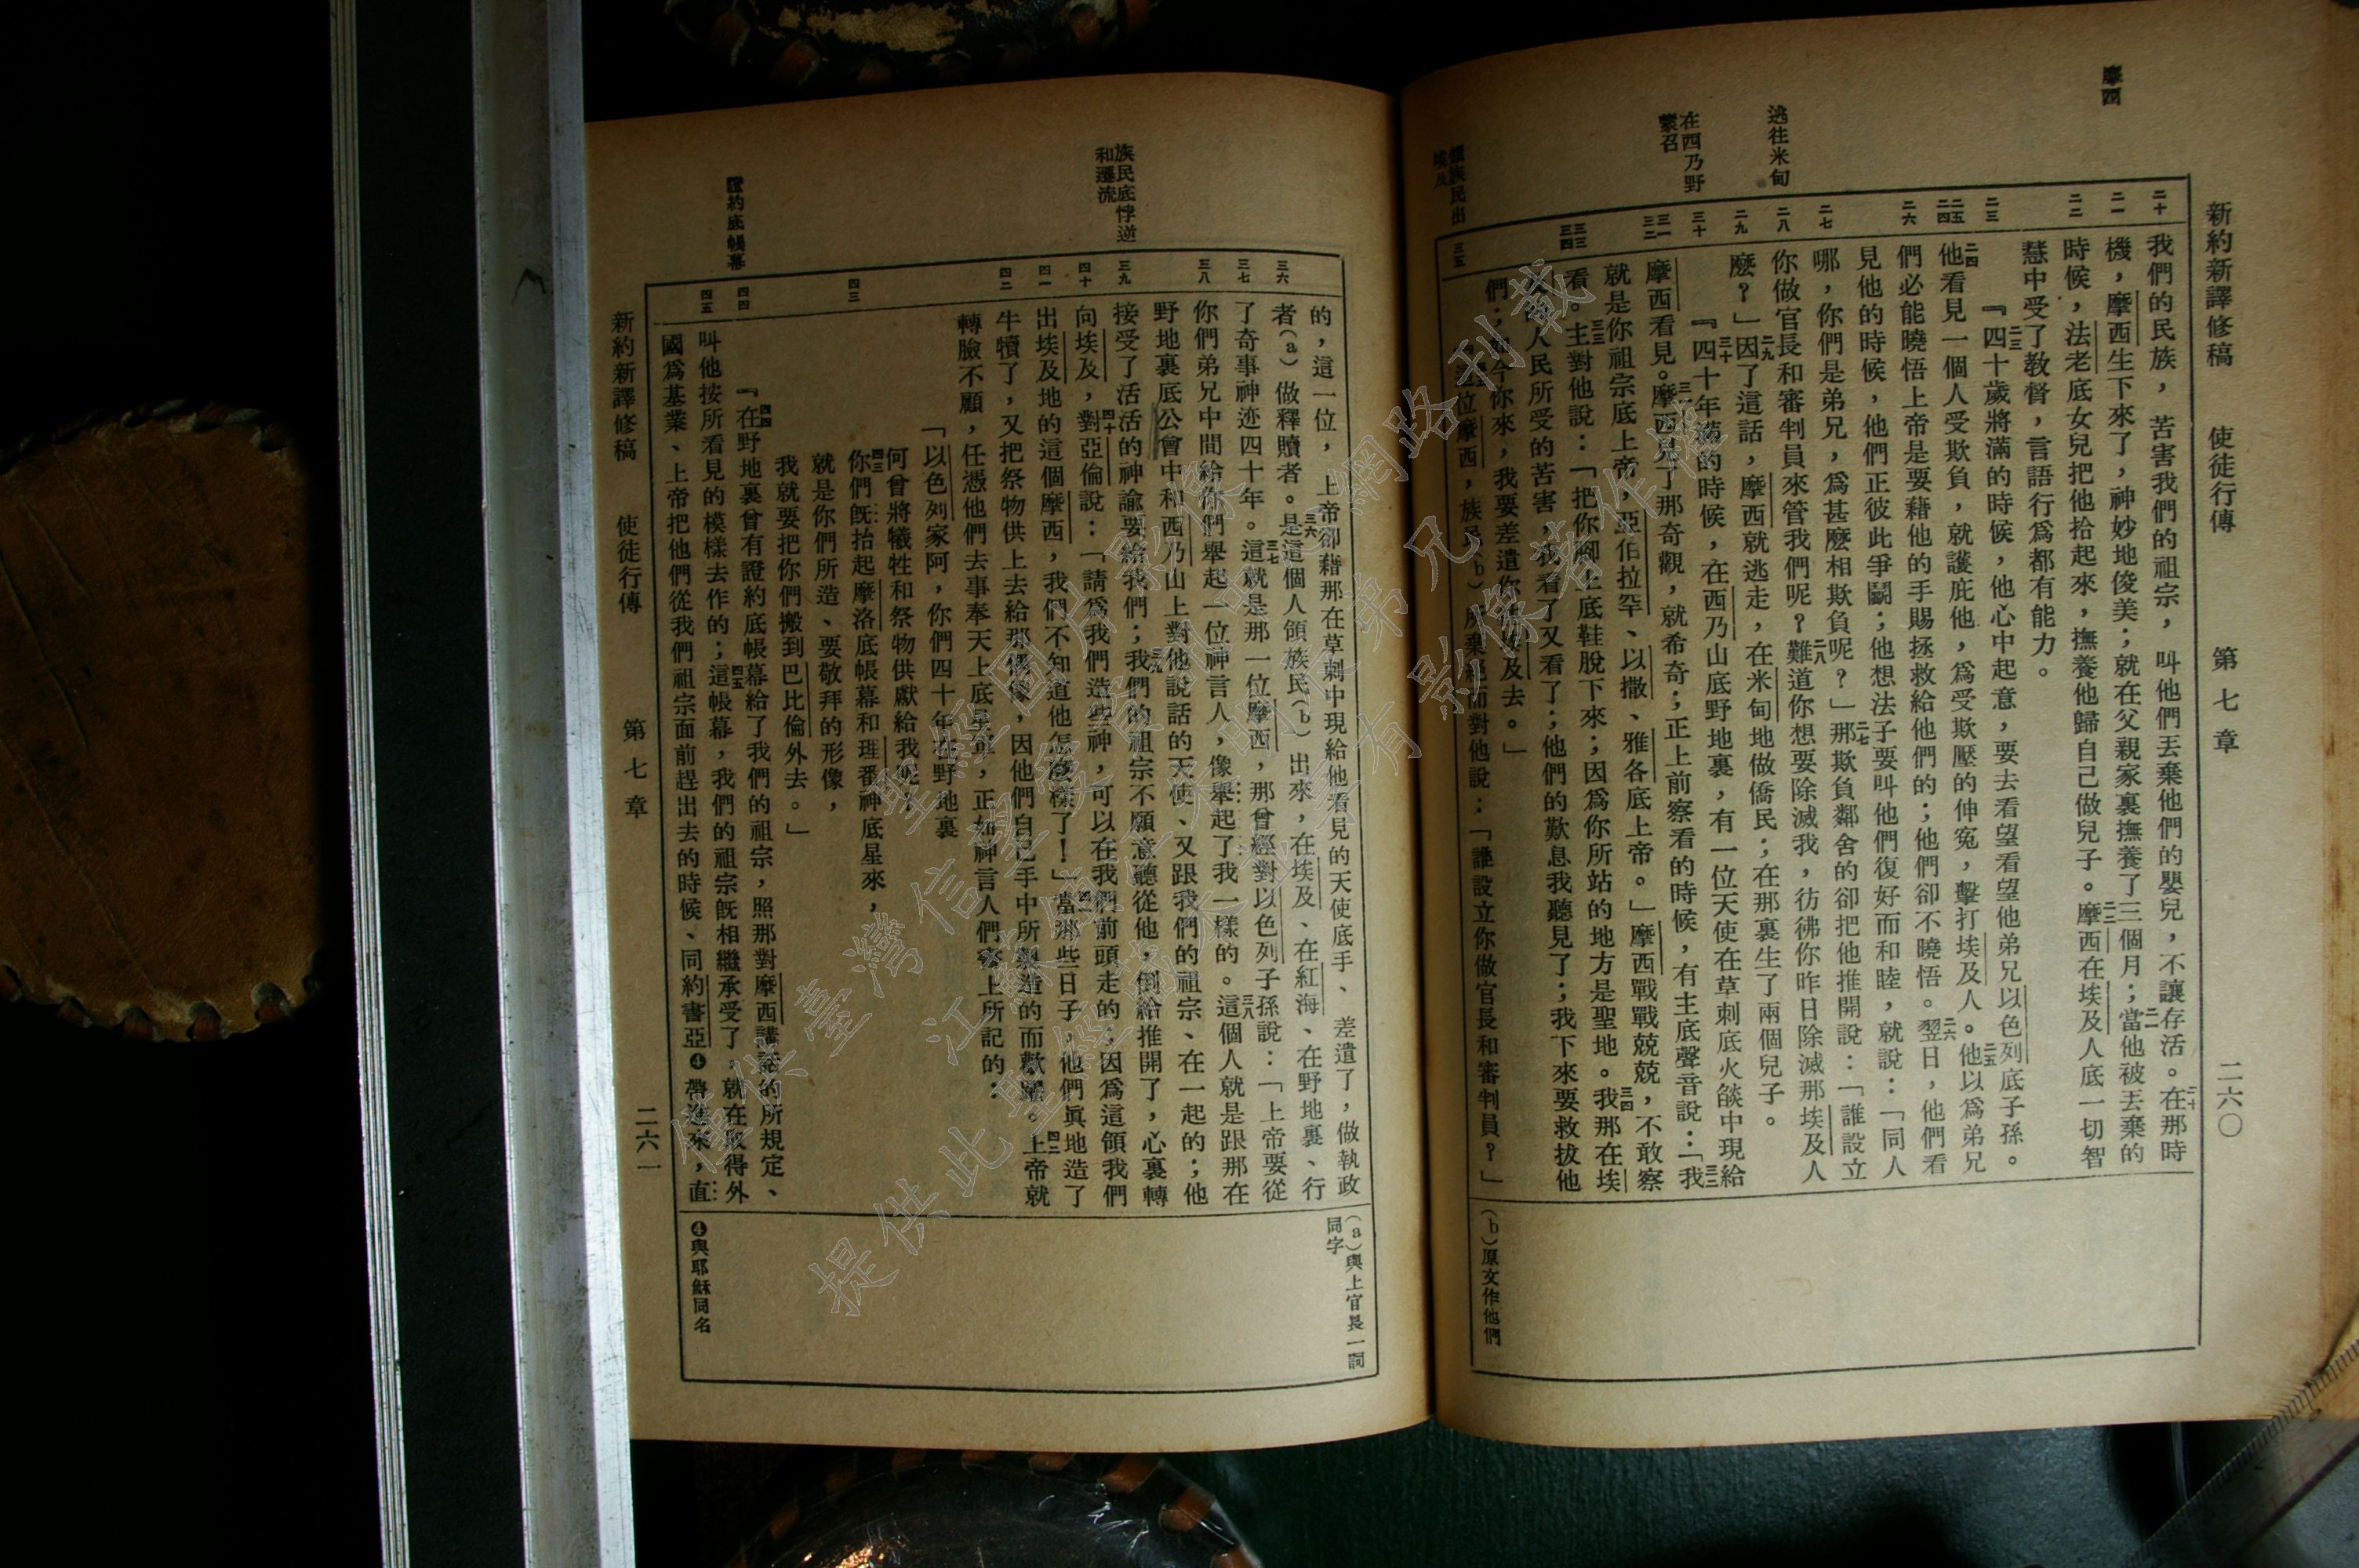 新約新譯修稿　使徒行傳　第七章　二六〇
摩西
逃往米甸
在西乃野
蒙召
領族民出
埃及
二十
二一
二二
二三
二四
二五
二六
二七
二八
二九
三十
三一
三二
三三
三四
三五
我們的民族，苦害我們的祖宗，叫他們丟棄他們的嬰兒，不讓存活。二十在那時
機，摩西生下來了，神妙地俊美；就在父親家裏撫養了三個月；二一當他被丟棄的
時候，法老底女兒把他拾起來，撫養他歸自己做兒子。二二摩西在埃及人底一切智
慧中受了教督，言語行爲都有能力。
『二三四十歲將滿的時候，他心中起意，要去看望看望他弟兄以色列底子孫。
二四他看見一個人受欺負，就護庇他，爲受欺壓的伸寃，擊打埃及人。二五他以爲弟兄
們必能曉悟上帝是要藉他的手賜拯救給他們的；他們卻不曉悟。二六翌日，他們看
見他的時候，他們正彼此爭鬭；他想法子要叫他們復好而和睦，就說：「同人
哪，你們是弟兄，爲甚麼相欺負呢？」二七那欺負鄰舍的卻把他推開說：「誰設立
你做官長和審判員來管我們呢？二八難道你想要除滅我，彷彿你昨日除滅那埃及人
麼？」二九因了這話，摩西就逃走，在米甸地做僑民；在那裏生了兩個兒子。
『三十四十年滿的時候，在西乃山底野地裏，有一位天使在草刺底火燄中現給
摩西看見。三一摩西見了那奇觀，就希奇；正上前察看的時候，有主底聲音說：三二「我
就是你祖宗底上帝，亞伯拉罕、以撒、雅各底上帝。」摩西戰戰兢兢，不敢察
看。三三主對他說：「把你腳上底鞋脫下來；因爲你所站的地方是聖地。三四我那在埃
人民所受的苦害，我看了又看了；他們的歎息我聽見了；我下來要救拔他
們；如今你來，我要差遣你埃及去。」
位摩西，族民(b)所棄絕而對他說：「誰設立你做官長和審判員？」
(b)原文作他們
族民底悖逆
和遷流
證約底帳幕
三六
三七
三八
三九
四十
四一
四二
四三
四四
四五
的，這一位，上帝卻藉那在草刺中現給他看見的天使底手、差遣了，做執政
者(a)做釋贖者。三六是這個人領族民(b)出來，在埃及、在紅海、在野地裏、行
了奇事神迹四十年。三七這就是那一位摩西，那曾經對以色列子孫說：「上帝要從
你們弟兄中間給你們舉起一位神言人，像舉起了我一樣的。三八這個人就是跟那在
野地裏底公會中和西乃山上對他說話的天使、又跟我們的祖宗、在一起的；他
接受了活活的神諭要給我們；三九我們的祖宗不願意聽從他，倒給推開了，心裏轉
向埃及，四十對亞倫說：「請爲我們造些神，可以在我們前頭走的；因爲這領我們
出埃及地的這個摩西，我們不知道他怎麼樣了！」四一當那些日子，他們眞地造了
牛犢了，又把祭物供上去給那偶像，因他們自己手中所製造的而歡躍。四二上帝就
轉臉不顧，任憑他們去事奉天上底星軍，正如神言人們書上所記的：
「以色列家阿，你們四十年在野地裏
何曾將犧牲和祭物供獻給我呢？
四三你們旣抬起摩洛底帳幕和理番神底星來，
就是你們所造、要敬拜的形像，
我就要把你們搬到巴比倫外去。」
『四四在野地裏曾有證約底帳幕給了我們的祖宗，照那對摩西講話的所規定、
叫他按所看見的模樣去作的；四五這帳幕，我們的祖宗旣相繼承受了，就在取得外
國爲基業、上帝把他們從我們祖宗面前趕出去的時候、同約書亞❹帶進來，直
(a)與上官長一詞
同字
❹與耶穌同名
新約新譯修稿　使徒行傳　第七章　二六一